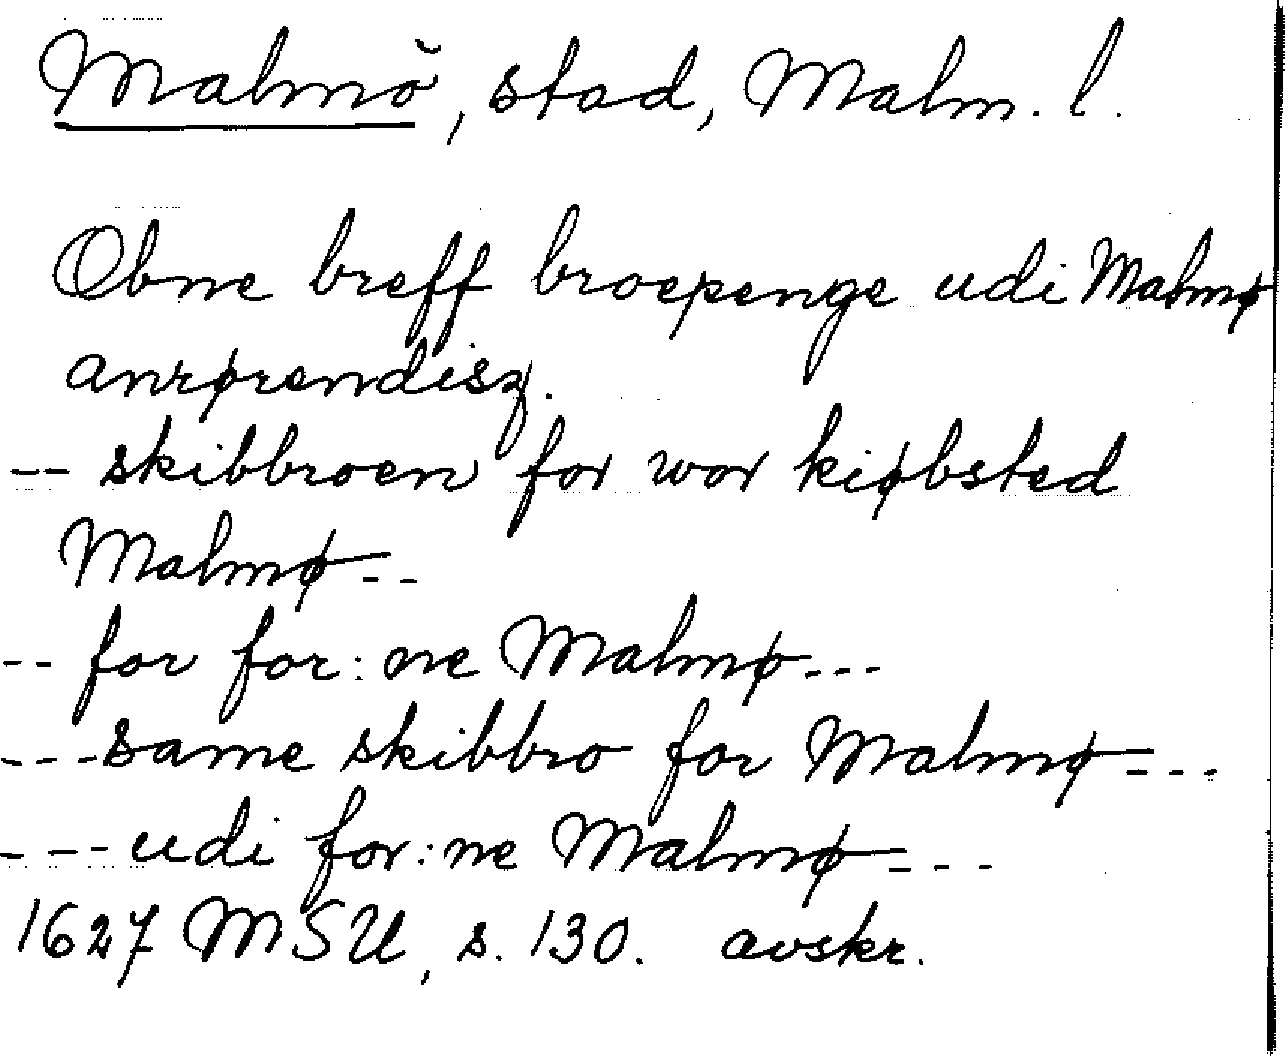 Malmö, stad, Malm. l.
Obne breff broepenge udi Malmø
anrørendisz.
-- skibbroen for wor kiøbsted
Malmø --
-- for for:ne Malmø ---
--- same skibbro for Malmø ---
--- udi for:ne Malmø ---
1627 MSU, s. 130. avskr.